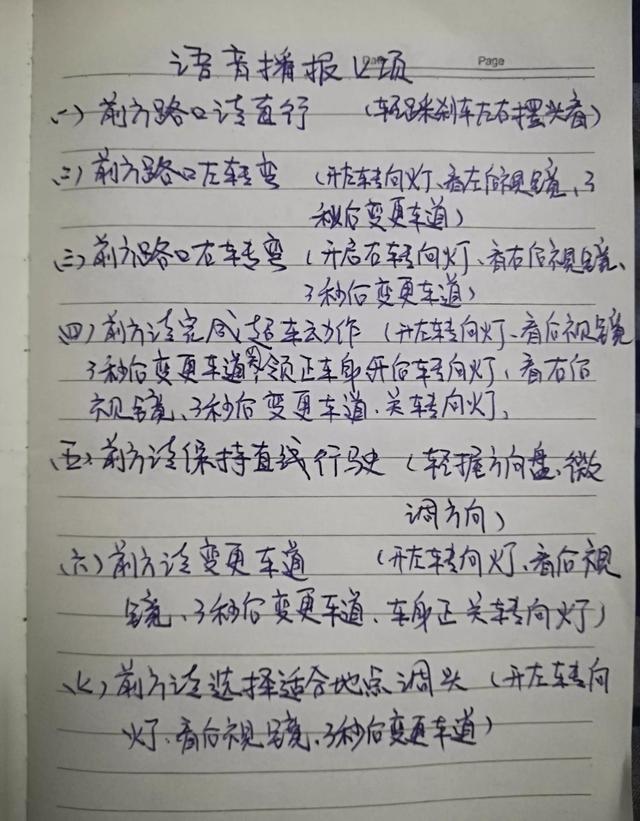 Date Page
语音播报12项
(一) 前方路口请直行 (轻踩刹车左右摆头看)
(二) 前方路口左转弯 (开左转向灯、看左后视镜、3
秒后变更车道)
(三) 前方路口右转弯 (开启右转向灯、看右后视镜、
3秒后变更车道)
(四) 前方请完成超车动作 (开左转向灯、看后视镜
3秒后变更车道 领正车身开右转向灯、看右后
视镜、3秒后变更车道、关转向灯、
(五) 前方请保持直线行驶 (轻握方向盘、微
调方向)
(六) 前方请变更车道 (开左转向灯、看后视
镜、3秒后变更车道、车身正关转向灯)
(七) 前方请选择适合地点调头 (开左转向
灯、看后视镜、3秒后变更车道)